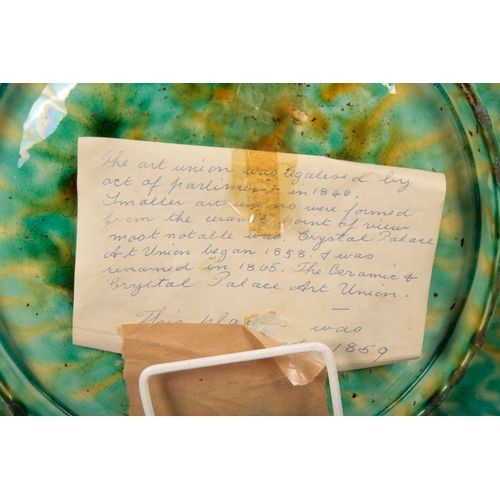 The art union was legalised by
act of parliment in 1846.
Smaller art unions were formed
from the ceramic point of view
most notable was. Crystal Palace
Art Union began 1858. & was
renamed in 1865. The Ceramic &
Crystal Palace Art Union.
This plate was
1859